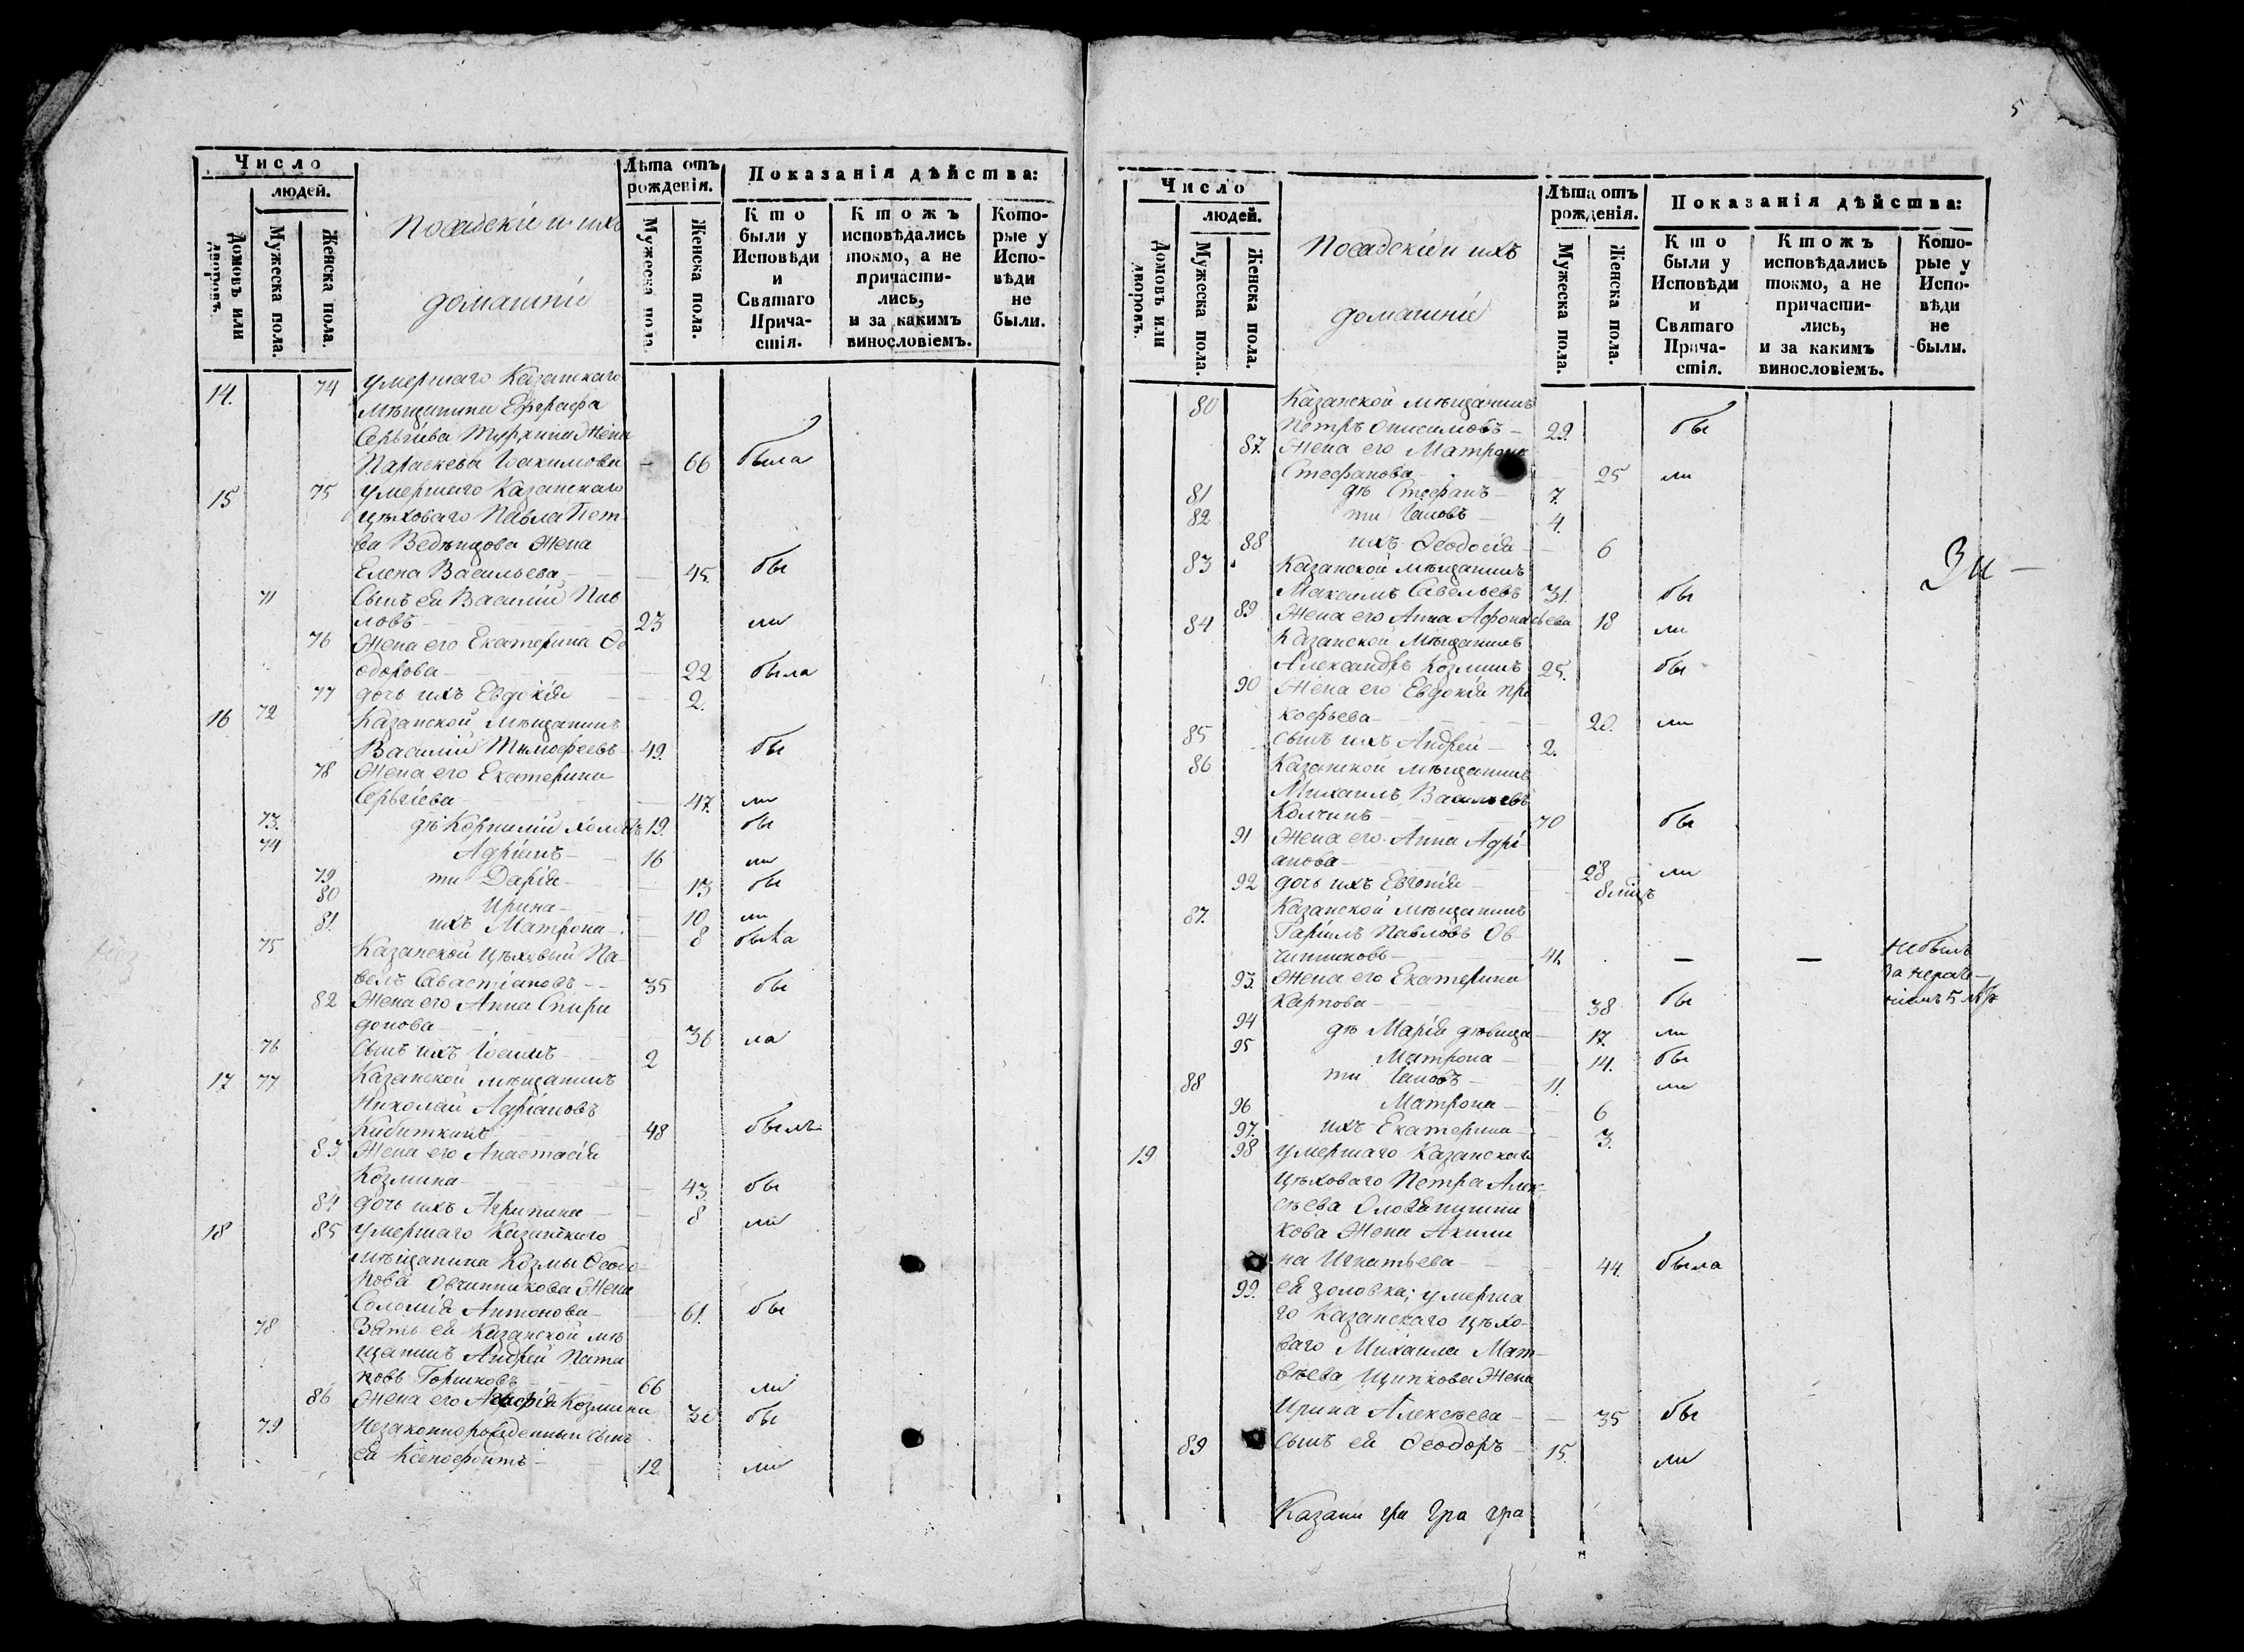 Число
людей.
Домовъ или дворовъ.
Мужеска пола.
Женска пола.
Посадскіе и ихъ
домашніе
Лѣта отъ
рожденія.
Мужеска пола.
Женска пола.
Показанія дѣйства:
Кто
были у
Исповѣди
и
Святаго
Прича-
стія.
Ктожъ
исповѣдались
токмо, а не
причасти-
лись,
и за какимъ
винословіемъ.
Кото-
рые у
Испо-
вѣди
не
были.
14. 74 умершаго Казанскаго
мѣщанина Евграфа
Серьгіева жена
Параскева Іоакимова — 66 была
15 75 умершаго Казанскаго
цѣховаго Павла Пет
ва Веденцова жена
Елена Васильева — 45. бы
71 Сынъ ея Василій Пав
ловъ 23 ли
76 Жена его Екатерина Ѳе
одорова 22 была
77 дочь ихъ Евдокія 2.
16 72 Казанской мѣщанинъ
Василій Тимофеевъ 49. бы
78 Жена его Екатерина
Серьгіева 47. ли
73. дѣ Корнилій холостъ 19. бы
74 Адріанъ 16 ли
79 ти Дарія 13 бы
80 Ирина 10 ли
81. ихъ Матрона 8 была
75 Казанской цѣховый Па
велъ Савастіановъ 35 бы
82 Жена его Анна Спири
донова 36 ла
76 Сынъ ихъ 2
17 77 Казанской мѣщанинъ
Николай Адріановъ
Кибиткинъ 48 былъ
83 Жена его Анастасія
Козмина 43. бы
84 дочь ихъ Агрипина 8 ли
18 85 умершаго Казанскаго
мѣщанина Козмы Ѳеодо
рова Овчинникова жена
Соломія Антонова 61. бы
78 Зять ея Казанской мѣ
щанинъ Андрей Пата
повъ Горшковъ 66 ли
86 Жена его Козмина бы
79 Незаконнорожденный сынъ
ея Ксенофонтъ 12. ли
5
Число
людей.
Домовъ или дворовъ.
Мужеска пола.
Женска пола.
Посадскіе и ихъ
домашніе
Лѣта отъ
рожденія.
Мужеска пола.
Женска пола.
Показанія дѣйства:
Кто
были у
Исповѣди
и
Святаго
Прича-
стія.
Ктожъ
исповѣдались
токмо, а не
причасти-
лись,
и за какимъ
винословіемъ.
Кото-
рые у
Испо-
вѣди
не
были.
80 Казанской мѣщанинъ
Петръ Онисимовъ 29. бы
87. Жена его Матрона
Стефанова 25 ли
81 дѣ Стефанъ 7.
82 ти Іаковъ 4.
88 ихъ Ѳеодосія 6
83 Казанской мѣщанинъ
Максимъ Савельевъ 31. бы
89 Жена его Анна Афонасьева 18 ли
84 Казанской мѣщанинъ
Александръ Козминъ 25. бы
90 Жена его Евдокія Про
кофьева 20. ли
85 сынъ ихъ Андрей 2.
86 Казанской мѣщанинъ
Михаилъ Васильевъ
Колчинъ 70 бы
91 Жена его Анна Адрі
анова 28 ли
92 дочь ихъ Евгенія 8 мѣц
87. Казанской мѣщанинъ
Гаріилъ Павловъ Ов
чинниковъ 41. — — не былъ
за нераче
93. Жена его Екатерина
Карпова 38 бы
94 дѣ Марія дѣвица 17. ли
95 Матрона 14. бы
88 ти Іаковъ 11. ли
96 Матрона 6
97. ихъ Екатерина 3.
19 98 умершаго Казанскаго
цѣховаго Петра Алек
сѣева
кова жена Акили
на Игнатьева 44. была
99. ея золовка; умерша
го Казанскаго цѣхо
ваго Михаила Мат
вѣева Щипкова жена
Ирина Алексѣева 35 бы
89 сынъ ея Ѳеодоръ 15. ли
Казани гра гра гра